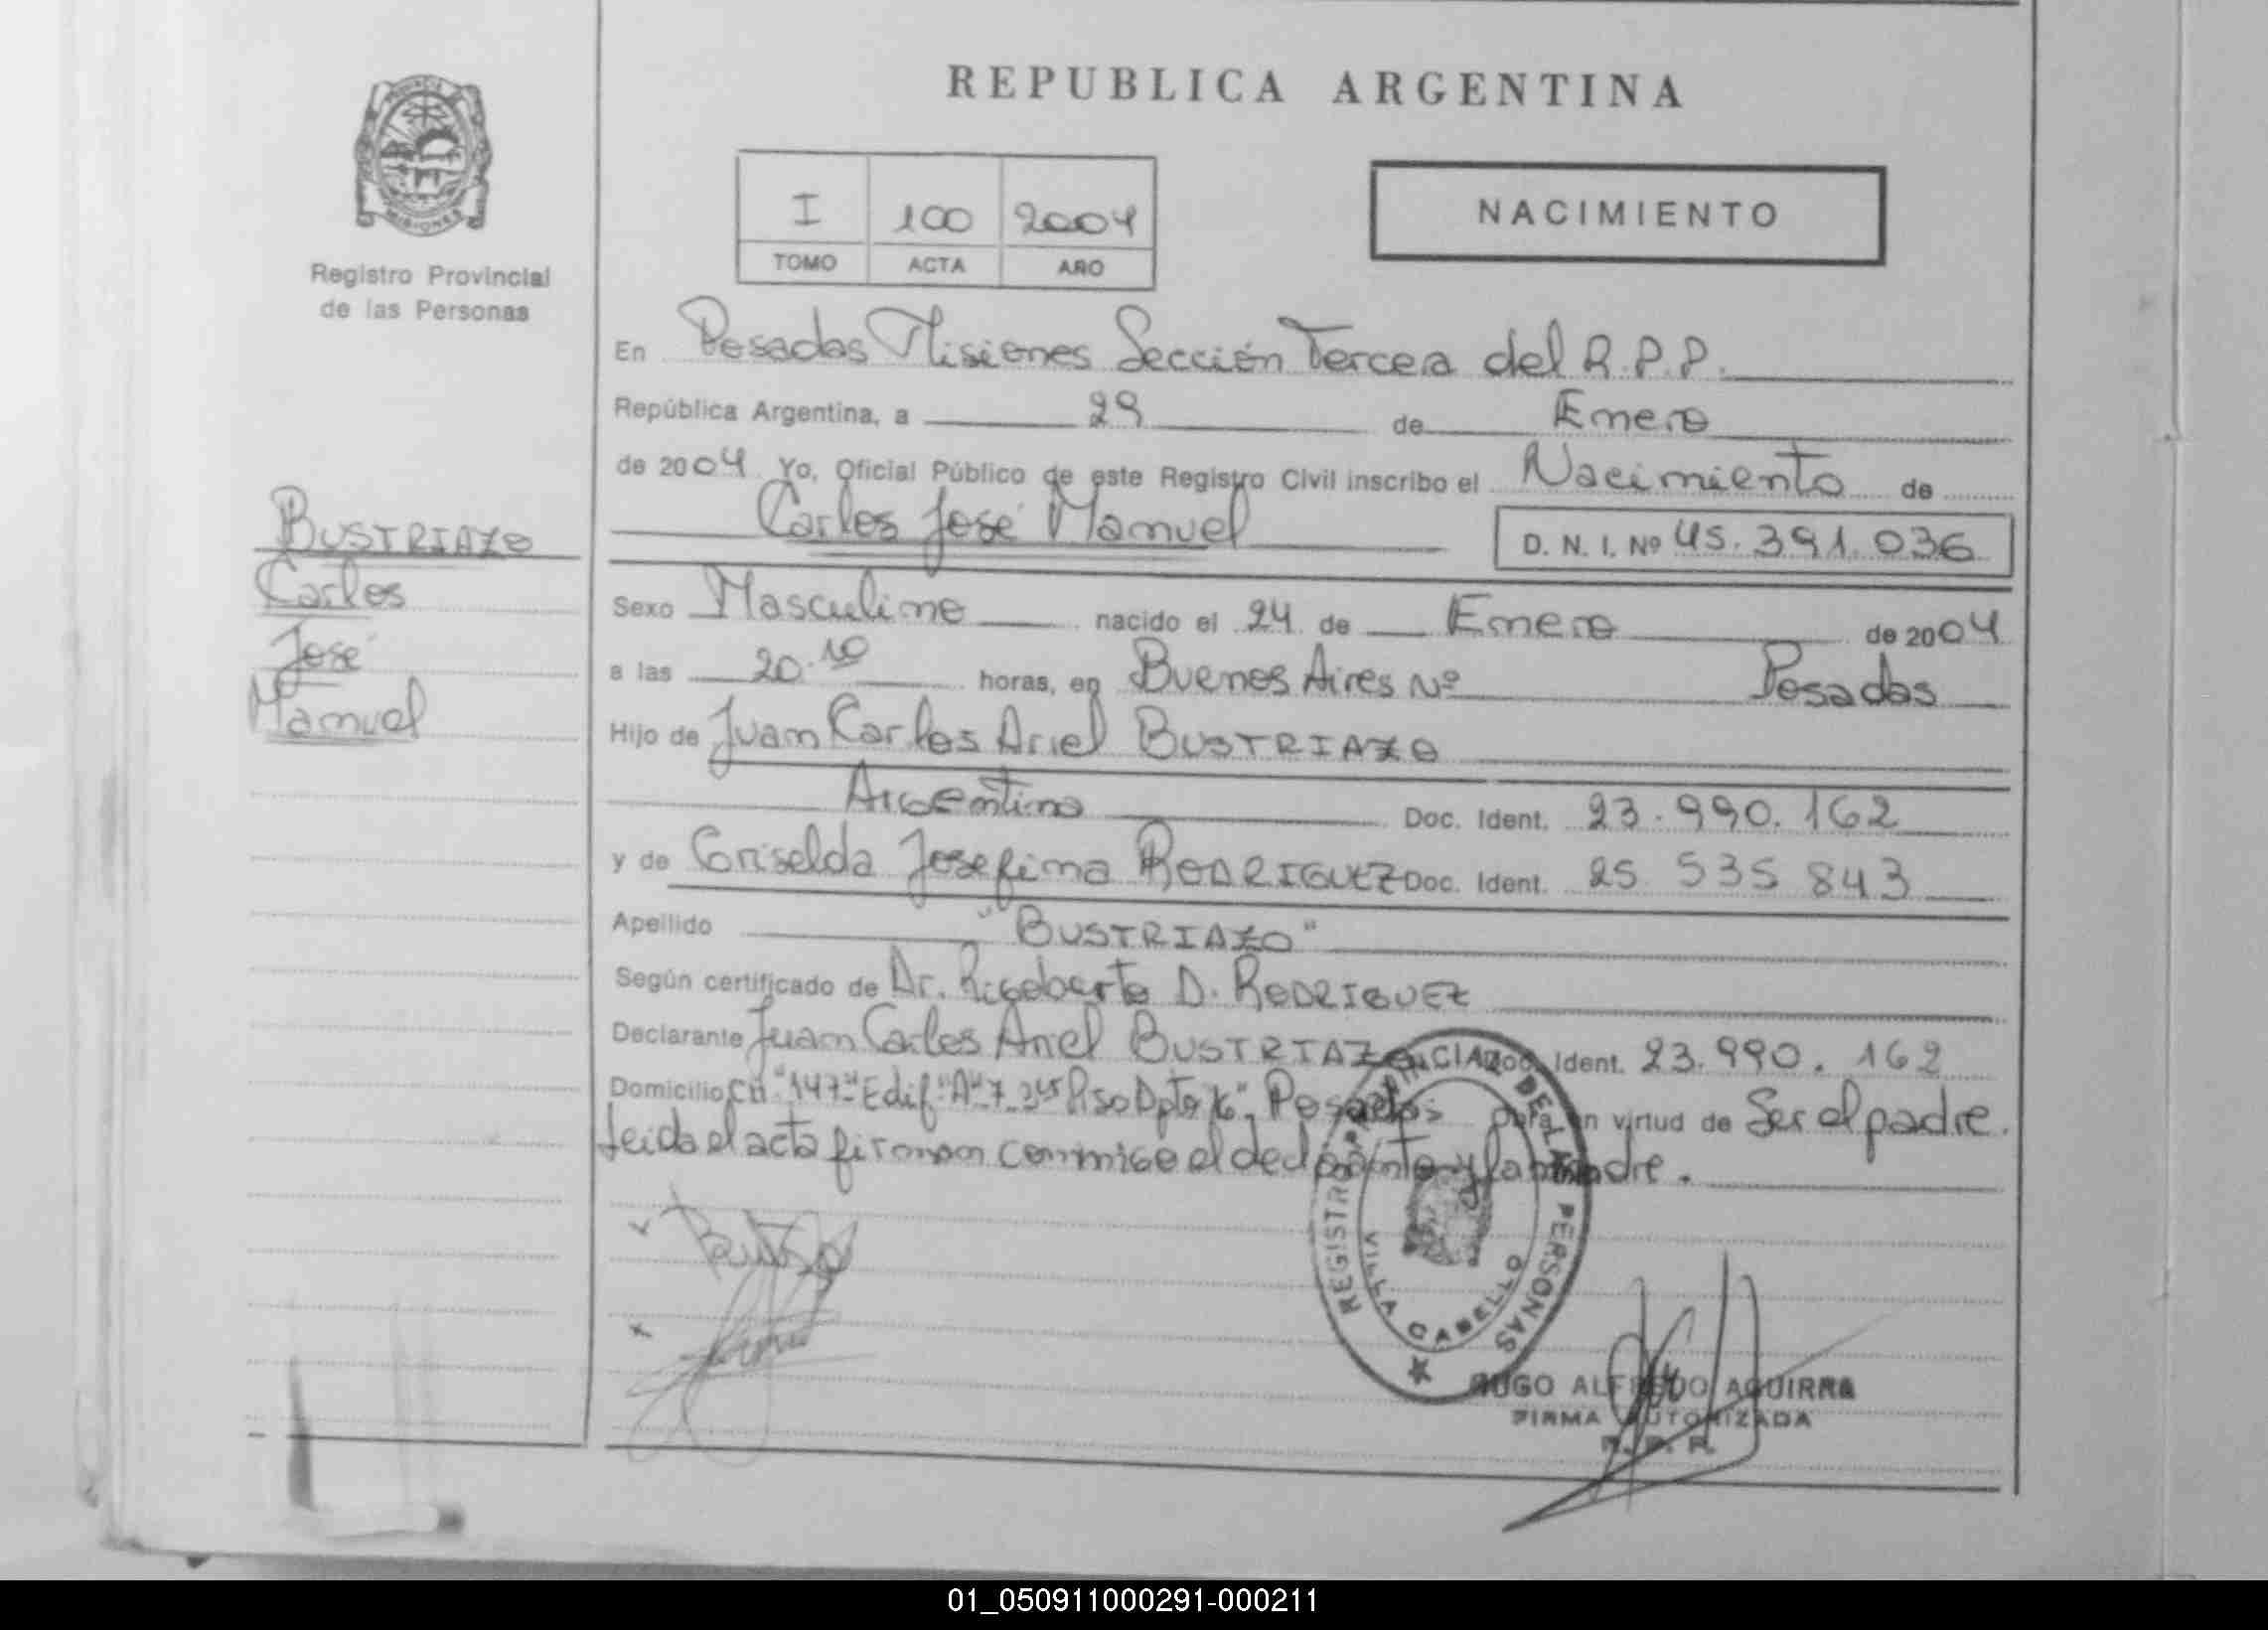 REPUBLICA ARGENTINA
PROVINCIA
MISIONES
Registro Provincial
de las Personas
I 100 2004
TOMO ACTA AÑO
NACIMIENTO
En Posadas Misiones Sección Tercera del R.P.P.
República Argentina, a 29 de Enero
de 2004 Yo, Oficial Público de este Registro Civil inscribo el Nacimiento de
Carlos José Manuel D. N. I. Nº 45.391.036
BUSTRIAZO
Carlos
José
Manuel
Sexo Masculino nacido el 24 de Enero de 2004
a las 20.10 horas, en Buenos Aires Nº Posadas
Hijo de Juan Carlos Ariel BUSTRIAZO
Argentino Doc. Ident. 23.990.162
y de Griselda Josefina RODRIGUEZ Doc. Ident. 25 535 843
Apellido "BUSTRIAZO"
Según certificado de Dr. Rigoberto D. RODRIGUEZ
Declarante Juan Carlos Ariel BUSTRIAZO Doc. Ident. 23.990.162
Domicilio CH "147" Edif "A" 7 Piso Dpto Posadas en virtud de Ser el padre.
Leida el acta firman conmigo el declarante y la madre.
REGISTRO PROVINCIAL DE LAS PERSONAS
VILLA CABELLO
HUGO ALFREDO AGUIRRE
FIRMA AUTORIZADA
R. P. P.
01_050911000291-000211